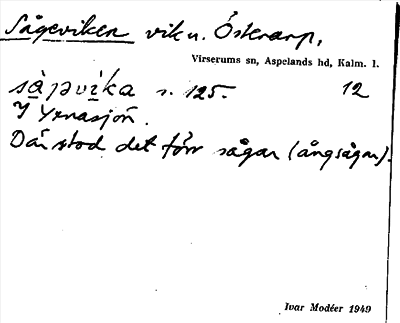 Sågeviken vik u. Österarp,
Virserums sn, Aspelands hd, Kalm. l.
s. 125. 12
I Yxnasjön.
Där stod det förr sågar (ångsågar).
Ivar Modéer 1949